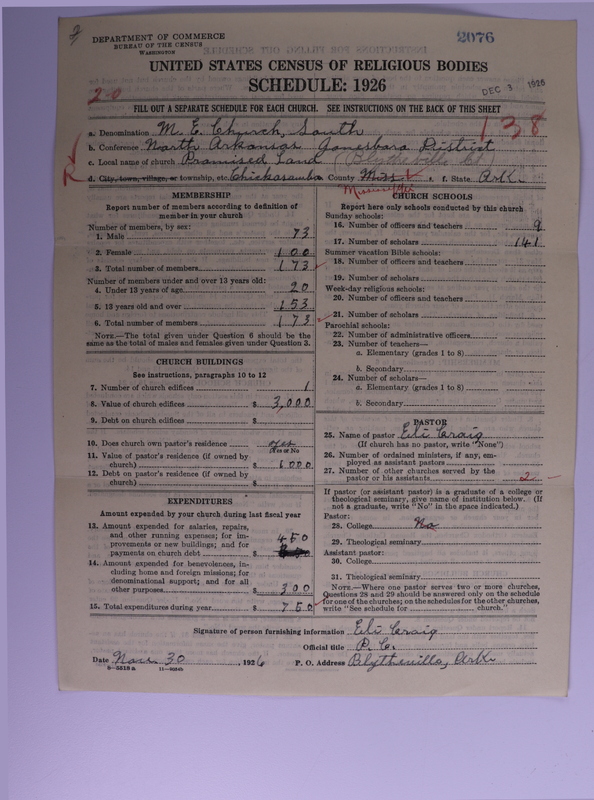 DEPARTMENT OF COMMERCE
BUREAU OF THE CENSUS
WASHINGTON
2076
UNITED STATES CENSUS OF RELIGIOUS BODIES
SCHEDULE: 1926
DEC 3 1926
2-0
FILL OUT A SEPARATE SCHEDULE FOR EACH CHURCH. SEE INSTRUCTIONS ON THE BACK OF THIS SHEET
138
a. Denomination M. E. Church, South
b. Conference North Arkansas Jonesboro District
c. Local name of church Promised Land (Blytheville Ct)
d. City, town, village, or township, etc. Chickasawba County Miss e. f. State Ark.
Mississippi
MEMBERSHIP
Report number of members according to definition of
member in your church
Number of members, by sex:
1. Male 73
2. Female 100
3. Total number of members 173
Number of members under and over 13 years old:
4. Under 13 years of age 20
5. 13 years old and over 153
6. Total number of members 173
NOTE.—The total given under Question 6 should be the
same as the total of males and females given under Question 3.
CHURCH BUILDINGS
See instructions, paragraphs 10 to 12
7. Number of church edifices 1
8. Value of church edifices $ 3,000
9. Debt on church edifices $
10. Does church own pastor's residence yes
Yes or No
11. Value of pastor's residence (if owned by
church) $ 6000
12. Debt on pastor's residence (if owned by
church) $
EXPENDITURES
Amount expended by your church during last fiscal year
13. Amount expended for salaries, repairs,
and other running expenses; for im-
provements or new buildings; and for
payments on church debt $ 450
14. Amount expended for benevolences, in-
cluding home and foreign missions; for
denominational support; and for all
other purposes $ 300
15. Total expenditures during year $ 750
CHURCH SCHOOLS
Report here only schools conducted by this church
Sunday schools:
16. Number of officers and teachers 9
17. Number of scholars 141
Summer vacation Bible schools:
18. Number of officers and teachers
19. Number of scholars
Week-day religious schools:
20. Number of officers and teachers
21. Number of scholars
Parochial schools:
22. Number of administrative officers
23. Number of teachers—
a. Elementary (grades 1 to 8)
b. Secondary
24. Number of scholars—
a. Elementary (grades 1 to 8)
b. Secondary
PASTOR
25. Name of pastor Eli Craig
(If church has no pastor, write "None")
26. Number of ordained ministers, if any, em-
ployed as assistant pastors
27. Number of other churches served by the
pastor or his assistants 2
If pastor (or assistant pastor) is a graduate of a college or
theological seminary, give name of institution below. (If
not a graduate, write "No" in the space indicated.)
Pastor:
28. College No
29. Theological seminary
Assistant pastor:
30. College
31. Theological seminary
NOTE.—Where one pastor serves two or more churches,
Questions 28 and 29 should be answered only on the schedule
for one of the churches; on the schedules for the other churches,
write "See schedule for church."
Signature of person furnishing information Eli Craig
Official title P. C.
Date Nov. 30, 1926 P. O. Address Blytheville, Ark.
8-5818a